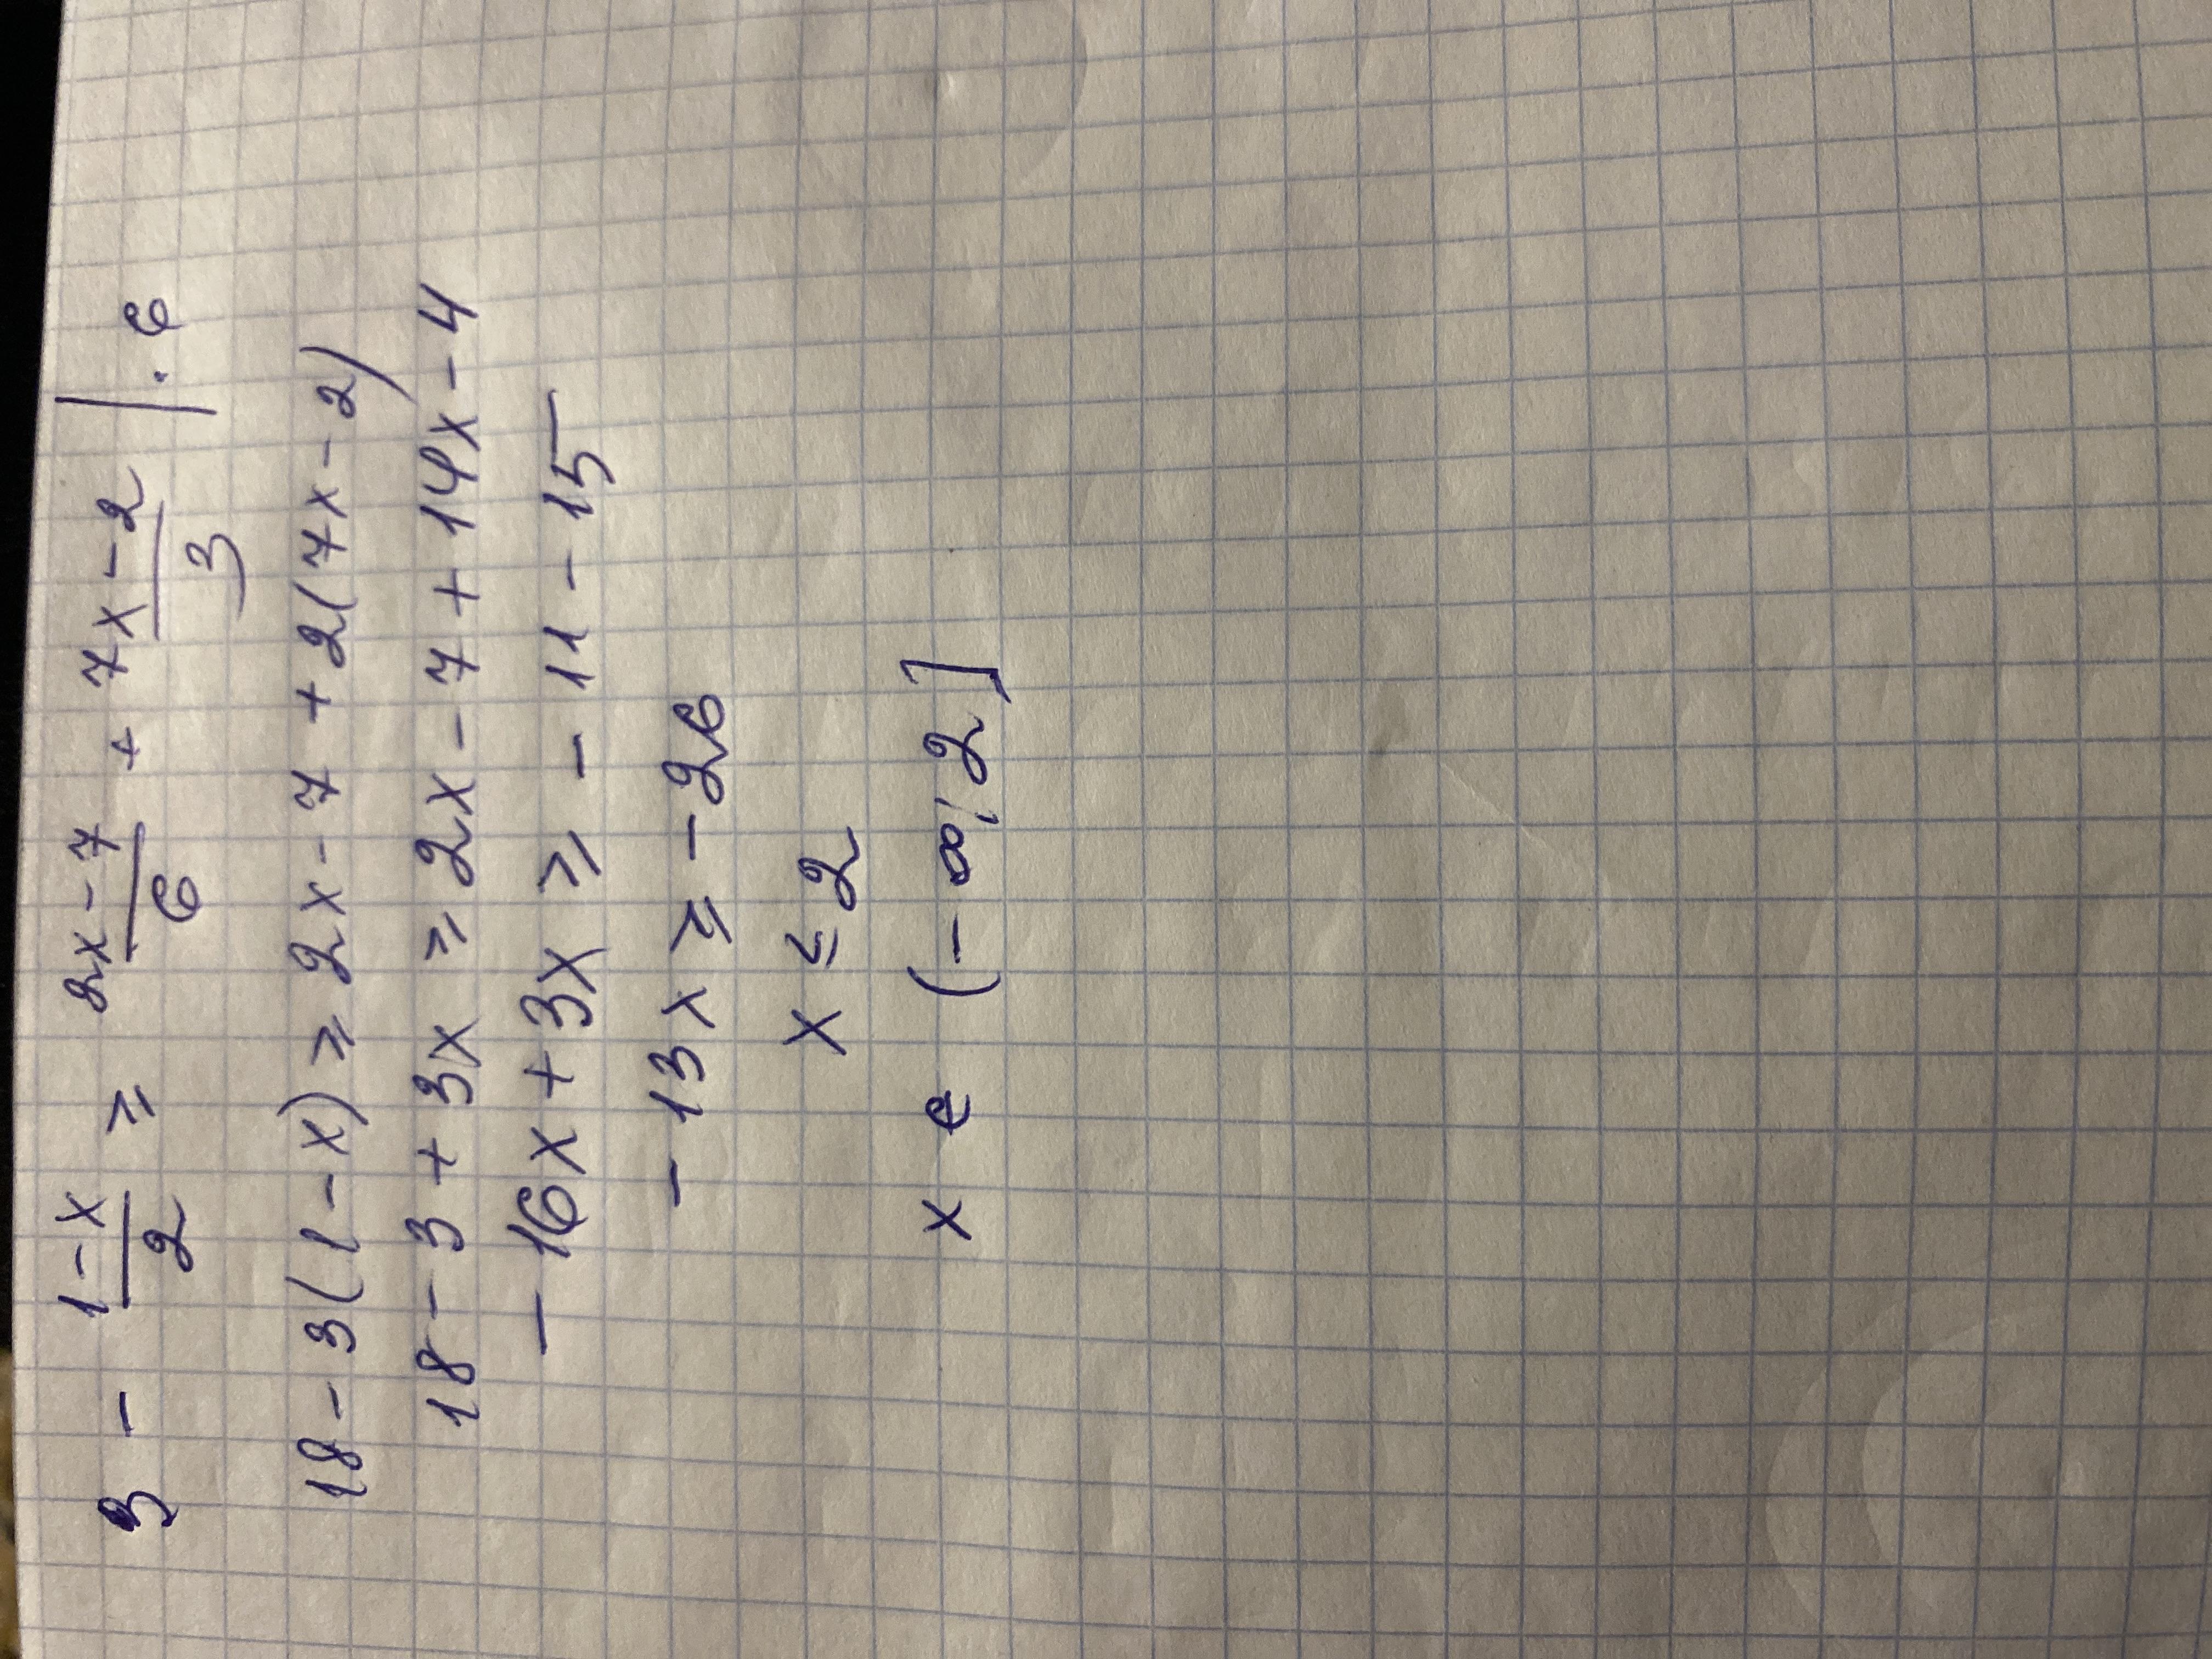 3 - \frac{1-x}{2} ≥ \frac{2x-7}{6} + \frac{7x-2}{3} | · 6
18 - 3(1-x) ≥ 2x - 7 + 2(7x-2)
18 - 3 + 3x ≥ 2x - 7 + 14x - 4
- 16x + 3x ≥ - 11 - 15
- 13x ≥ - 26
x ≤ 2
x ∈ (-∞; 2]